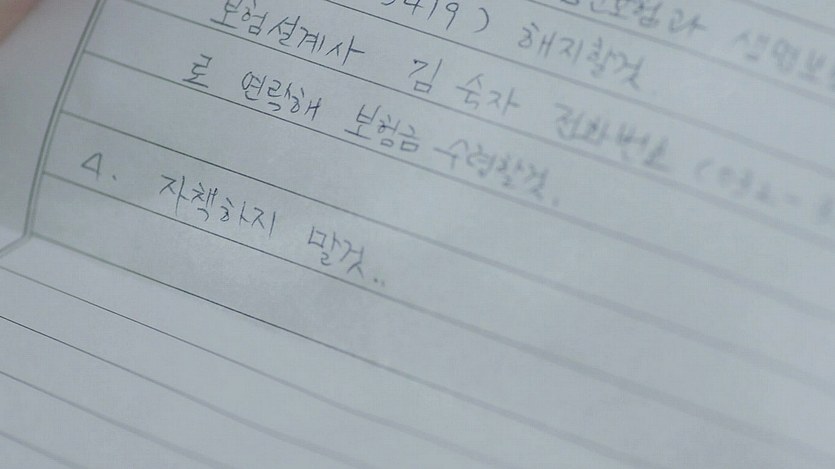 5419) 해지할것.
보험설계사 김숙자 전화번호
로 연락해 보험금 수령할것.
4. 자책하지 말것..